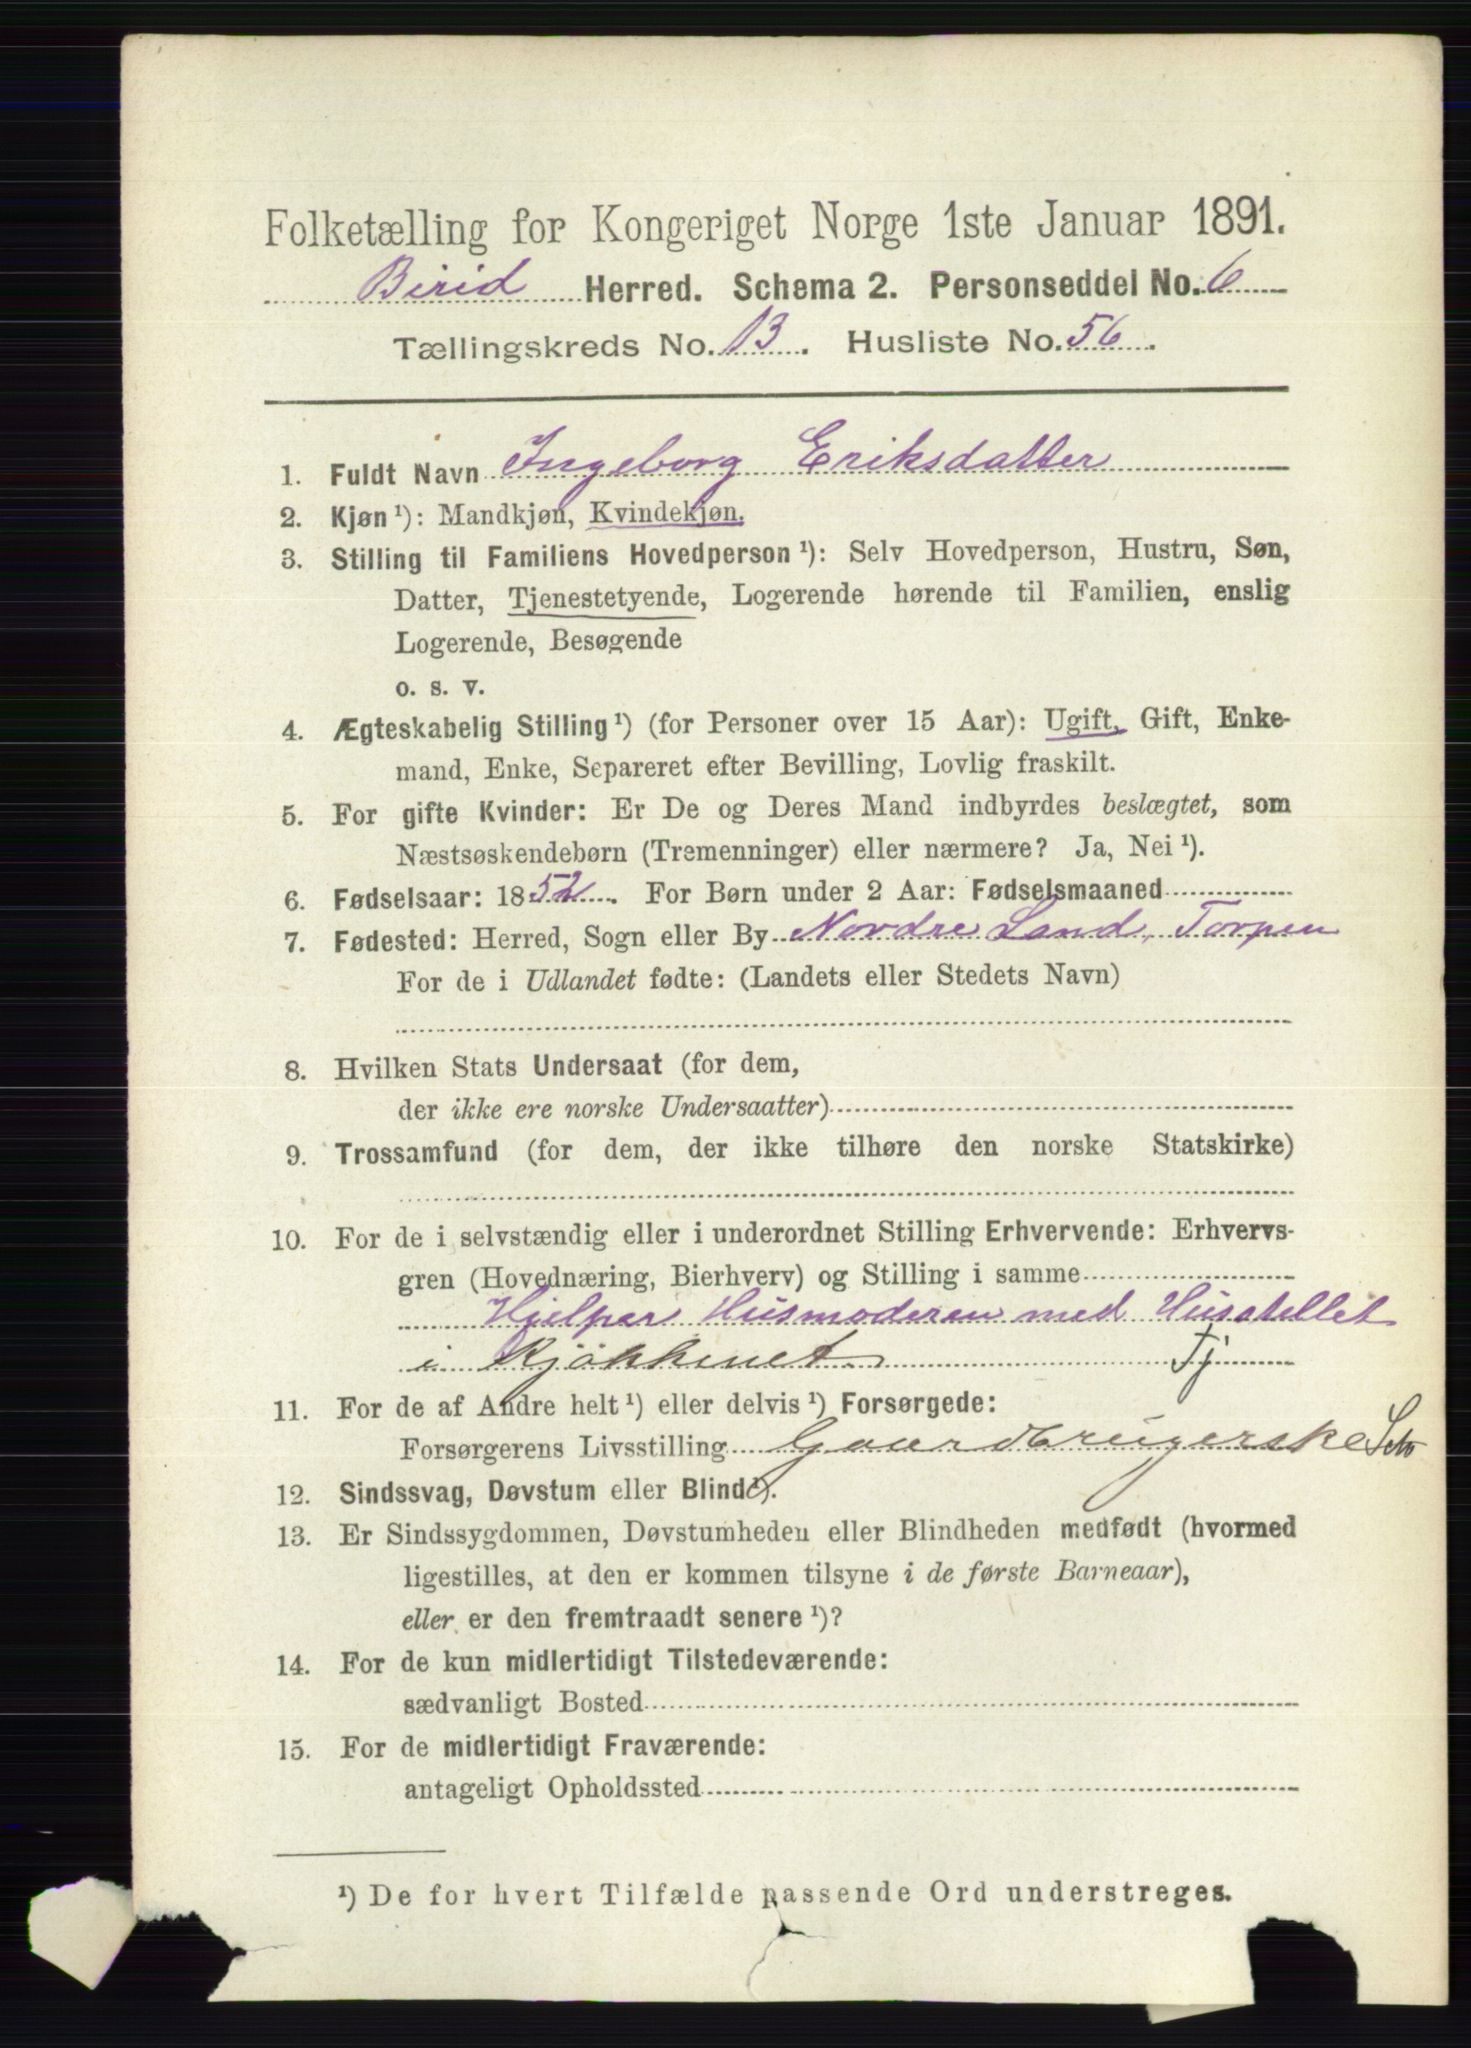 Folketælling for Kongeriget Norge 1ste Januar 1891.
Birid Herred. Schema 2. Personseddel No. 6
Tællingskreds No. 13. Husliste No. 56.
1. Fuldt Navn Ingeborg Eriksdatter
2. Kjøn ¹): Mandkjøn, Kvindekjøn.
3. Stilling til Familiens Hovedperson ¹): Selv Hovedperson, Hustru, Søn,
Datter, Tjenestetyende, Logerende hørende til Familien, enslig
Logerende, Besøgende
o. s. v.
4. Ægteskabelig Stilling ¹) (for Personer over 15 Aar): Ugift, Gift, Enke-
mand, Enke, Separeret efter Bevilling, Lovlig fraskilt.
5. For gifte Kvinder: Er De og Deres Mand indbyrdes beslægtet, som
Næstsøskendebørn (Tremenninger) eller nærmere? Ja, Nei ¹).
6. Fødselsaar: 1852. For Børn under 2 Aar: Fødselsmaaned
7. Fødested: Herred, Sogn eller By Nordre Land, Torpen
For de i Udlandet fødte: (Landets eller Stedets Navn)
8. Hvilken Stats Undersaat (for dem,
der ikke ere norske Undersaatter)
9. Trossamfund (for dem, der ikke tilhøre den norske Statskirke)
10. For de i selvstændig eller i underordnet Stilling Erhvervende: Erhvervs-
gren (Hovednæring, Bierhverv) og Stilling i samme
Hjelper Husmoderen med Husstellet
i Kjøkkenet. Tj
11. For de af Andre helt ¹) eller delvis ¹) Forsørgede:
Forsørgerens Livsstilling Gaardbrugerske Selv
12. Sindssvag, Døvstum eller Blind ¹).
13. Er Sindssygdommen, Døvstumheden eller Blindheden medfødt (hvormed
ligestilles, at den er kommen tilsyne i de første Barneaar),
eller er den fremtraadt senere ¹)?
14. For de kun midlertidigt Tilstedeværende:
sædvanligt Bosted
15. For de midlertidigt Fraværende:
antageligt Opholdssted
¹) De for hvert Tilfælde passende Ord understreges.